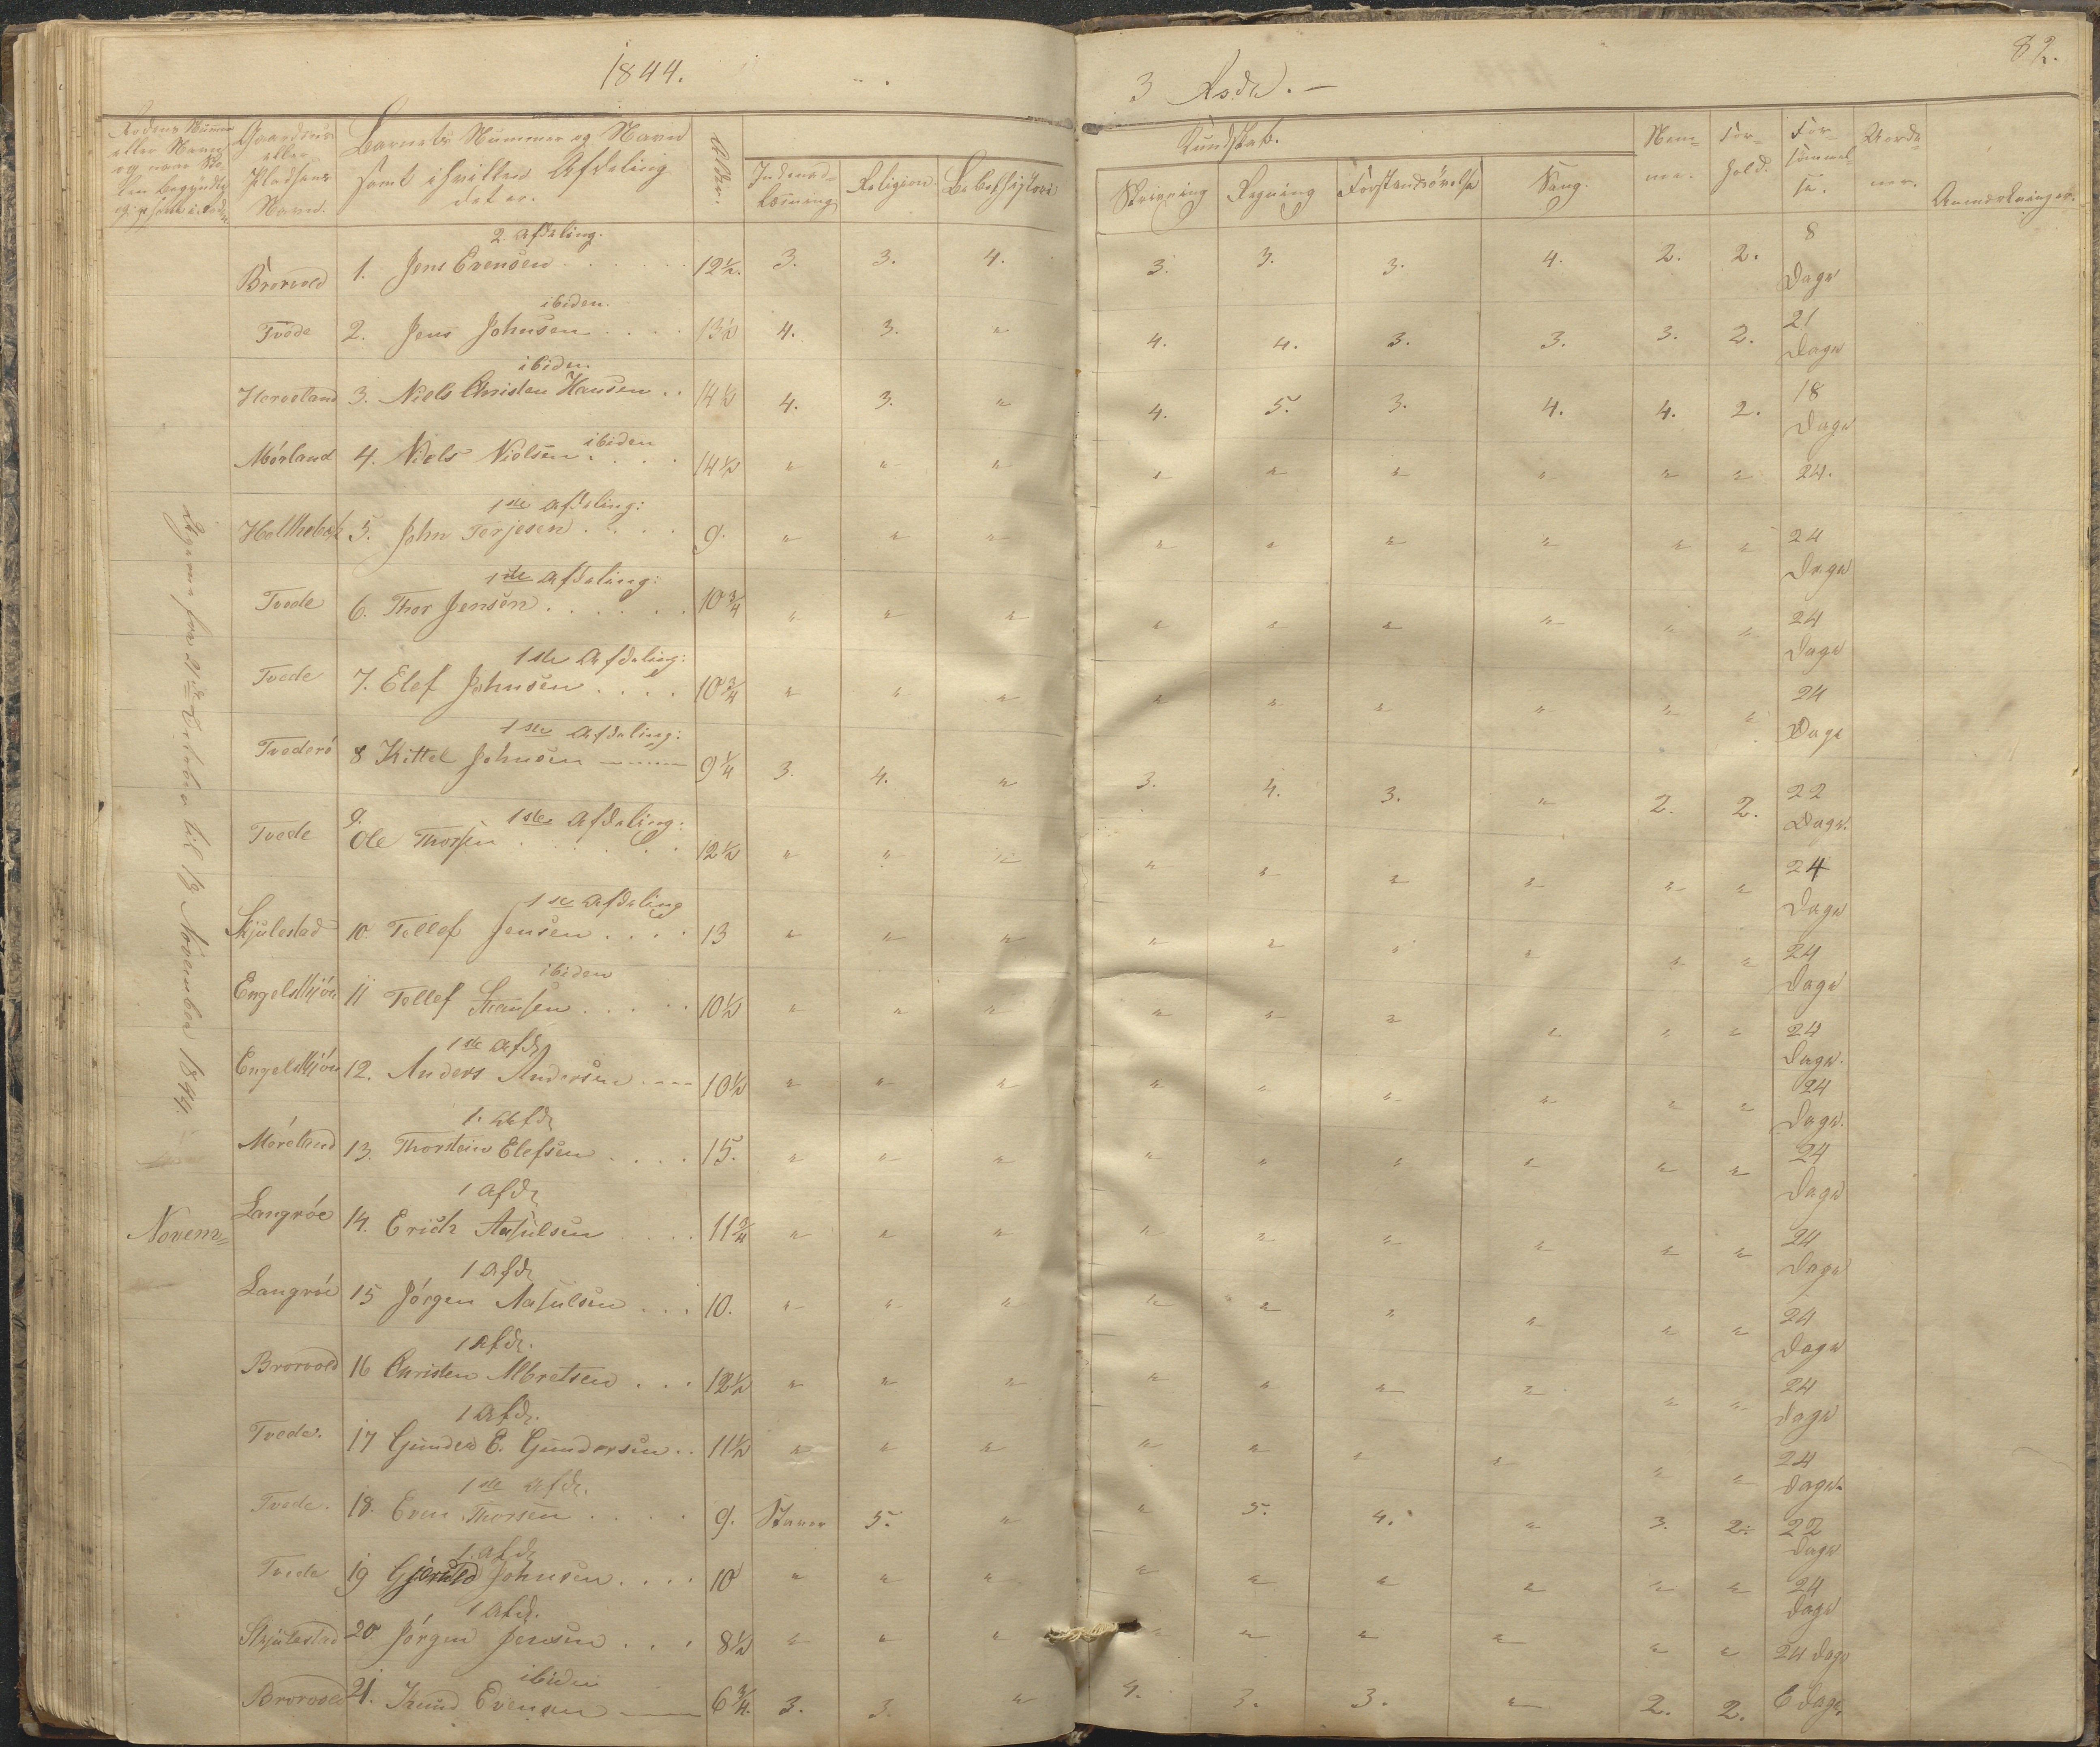 1844.
82.
3
Gaardens eller Pladsens Navn.
Barnets Nummer og Navn samt i hvilken Afdeling det er.
Alder.
Indenad-Læsning
Religion
Bibelhistorie
Kundskab.
Skrivning
Regning
Forstandsövelse
Sang.
Nem-me.
For-hold.
For-sömmel-se.
Anmærkninger.
2. Afdeling.
Brovold 1. Jens Evensen 12½. 3. 3. 4. 3. 3. 3. 4. 2. 2. 8 Dage
ibiden.
Tvede 2. Jens Johnsen 13½ 4. 3. " 4. 4. 3. 3. 3. 2. 21 Dage
ibiden.
3. Niels Christen Hansen 14½ 4. 3. " 4. 5. 3. 4. 4. 2. 18 Dage
ibiden
Mörland 4. Niels Nielsen 14½ " " " " " " " " " 24.
1ste Afdeling:
5. John Terjesen 9. " " " " " " " " " 24 Dage
1ste Afdeling:
Tvede 6. Thor Jensen 10¾ " " " " " " " " " 24 Dage
1ste Afdeling:
Tvede 7. Elef Johnsen 10¾ " " " " " " " " " 24 Dage
1ste Afdeling:
8 Kittel Johnsen 9¼ 3. 4. " 3. 4. 3. " 2. 2. 22 Dage.
1ste Afdeling:
Tvede 9. Ole Thorsen 12½ " " " " " " " " " 24 Dage
1ste Afdeling
Skjulestad 10. Tellef Jensen 13 " " " " " " " " " 24 Dage
ibiden
Engelskjön 11 Tellef 10½ " " " " " " " " " 24 Dage.
1ste Afd.
Engelskjön 12. Anders Andersen 10½ " " " " " " " " " 24 Dage.
1. Afd.
Möreland 13. Thorstein Elefsen 15. " " " " " " " " " 24 Dage
1 Afd.
Novem= Langröe 14. Erich Aasulsen 11¾ " " " " " " " " " 24 Dage
1 Afd.
Langröe 15 Jörgen Aasulsen 10. " " " " " " " " " 24 Dage
1 Afd.
Brovold 16 Christen Albretsen 12½ " " " " " " " " " 24 Dage
1 Afd.
Tvede. 17 Gunder E. Gundersen 11½ " " " " " " " " " 24 Dage
1ste Afd.
Tvede. 18. Even Thorsen 9. Staver 5. " " 5. 4. " 3. 2. 22 Dage
1. Afd.
Tvede 19 Gjeruld Johnsen 10 " " " " " " " " " 24 Dage
1 Afd.
Skjulestad 20 Jörgen Jensen 8½ " " " " " " " " " 24 Dage
ibiden
Brovold 21. Knud Evensen 6¾. 3. 3. " 4. 3. 3. " 2. 2. 6 Dage.
til 19 November 1844.